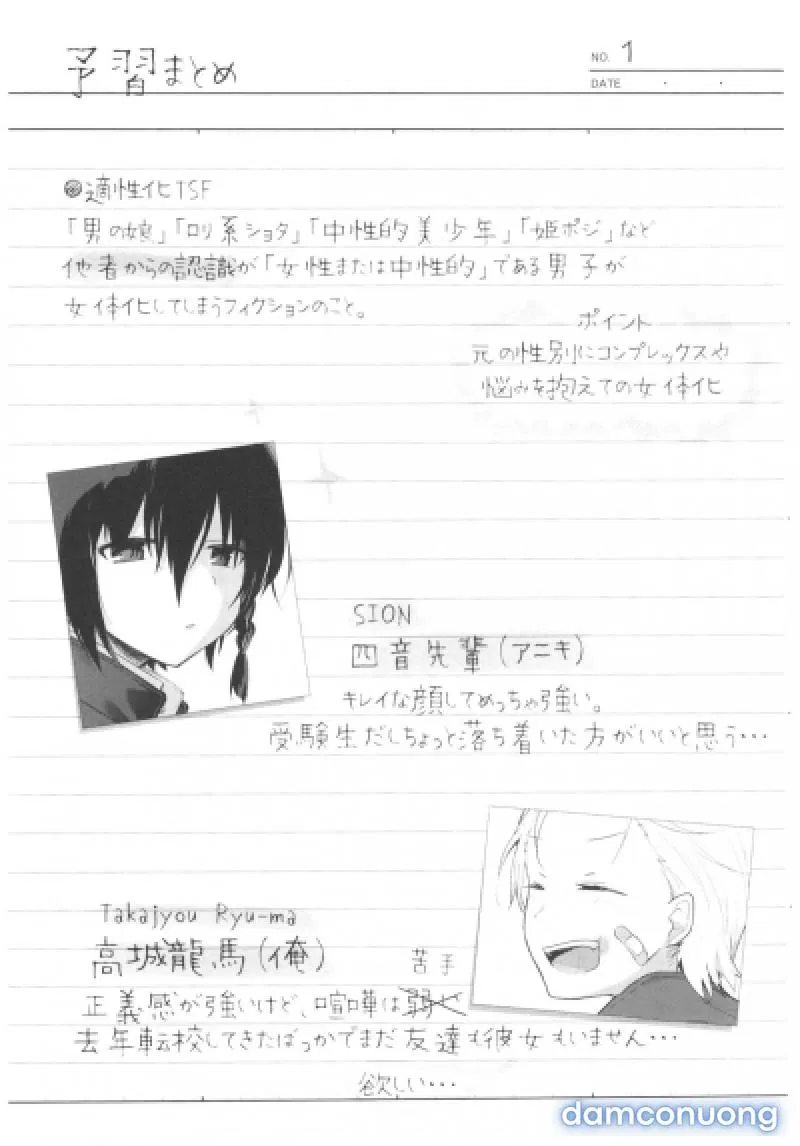 予習まとめ
NO. 1
DATE ・ ・
◎適性化TSF
「男の娘」「ロリ系ショタ」「中性的美少年」「姫ポジ」など
他者からの認識が「女性または中性的」である男子が
女体化してしまうフィクションのこと。
ポイント
元の性別にコンプレックスや
悩みを抱えての女体化
SION
四音先輩(アニキ)
キレイな顔してめっちゃ強い。
受験生だしちょっと落ち着いた方がいいと思う・・・
Takajyou Ryu-ma
高城龍馬(俺)
苦手
正義感が強いけど、喧嘩は弱い
去年転校してきたばっかでまだ友達も彼女もいません・・・
欲しい・・・
damconuong